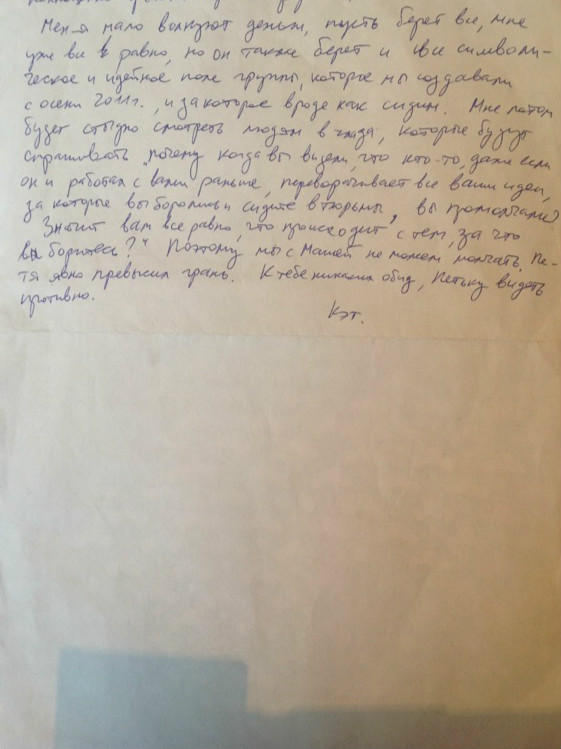 Меня мало волнуют деньги, пусть берет все, мне
уже все равно, но он также берет и все символи-
ческое и идейное поле группы, которое мы создавали
с осени 2011г., и за которое вроде как сидим. Мне потом
будет стыдно смотреть людям в глаза, которые будут
спрашивать „почему когда вы видели, что кто-то, даже если
он и работал с вами раньше, переворачивает все ваши идеи,
за которые вы боролись и сидите в тюрьмы, вы промолчали?
Значит вам все равно, что происходит с тем, за что
вы боритесь?" Поэтому мы с Машей не можем молчать. Пе-
тя явно превысил грань. К тебе никаких обид, Петьку видеть
противно.
Кэт.